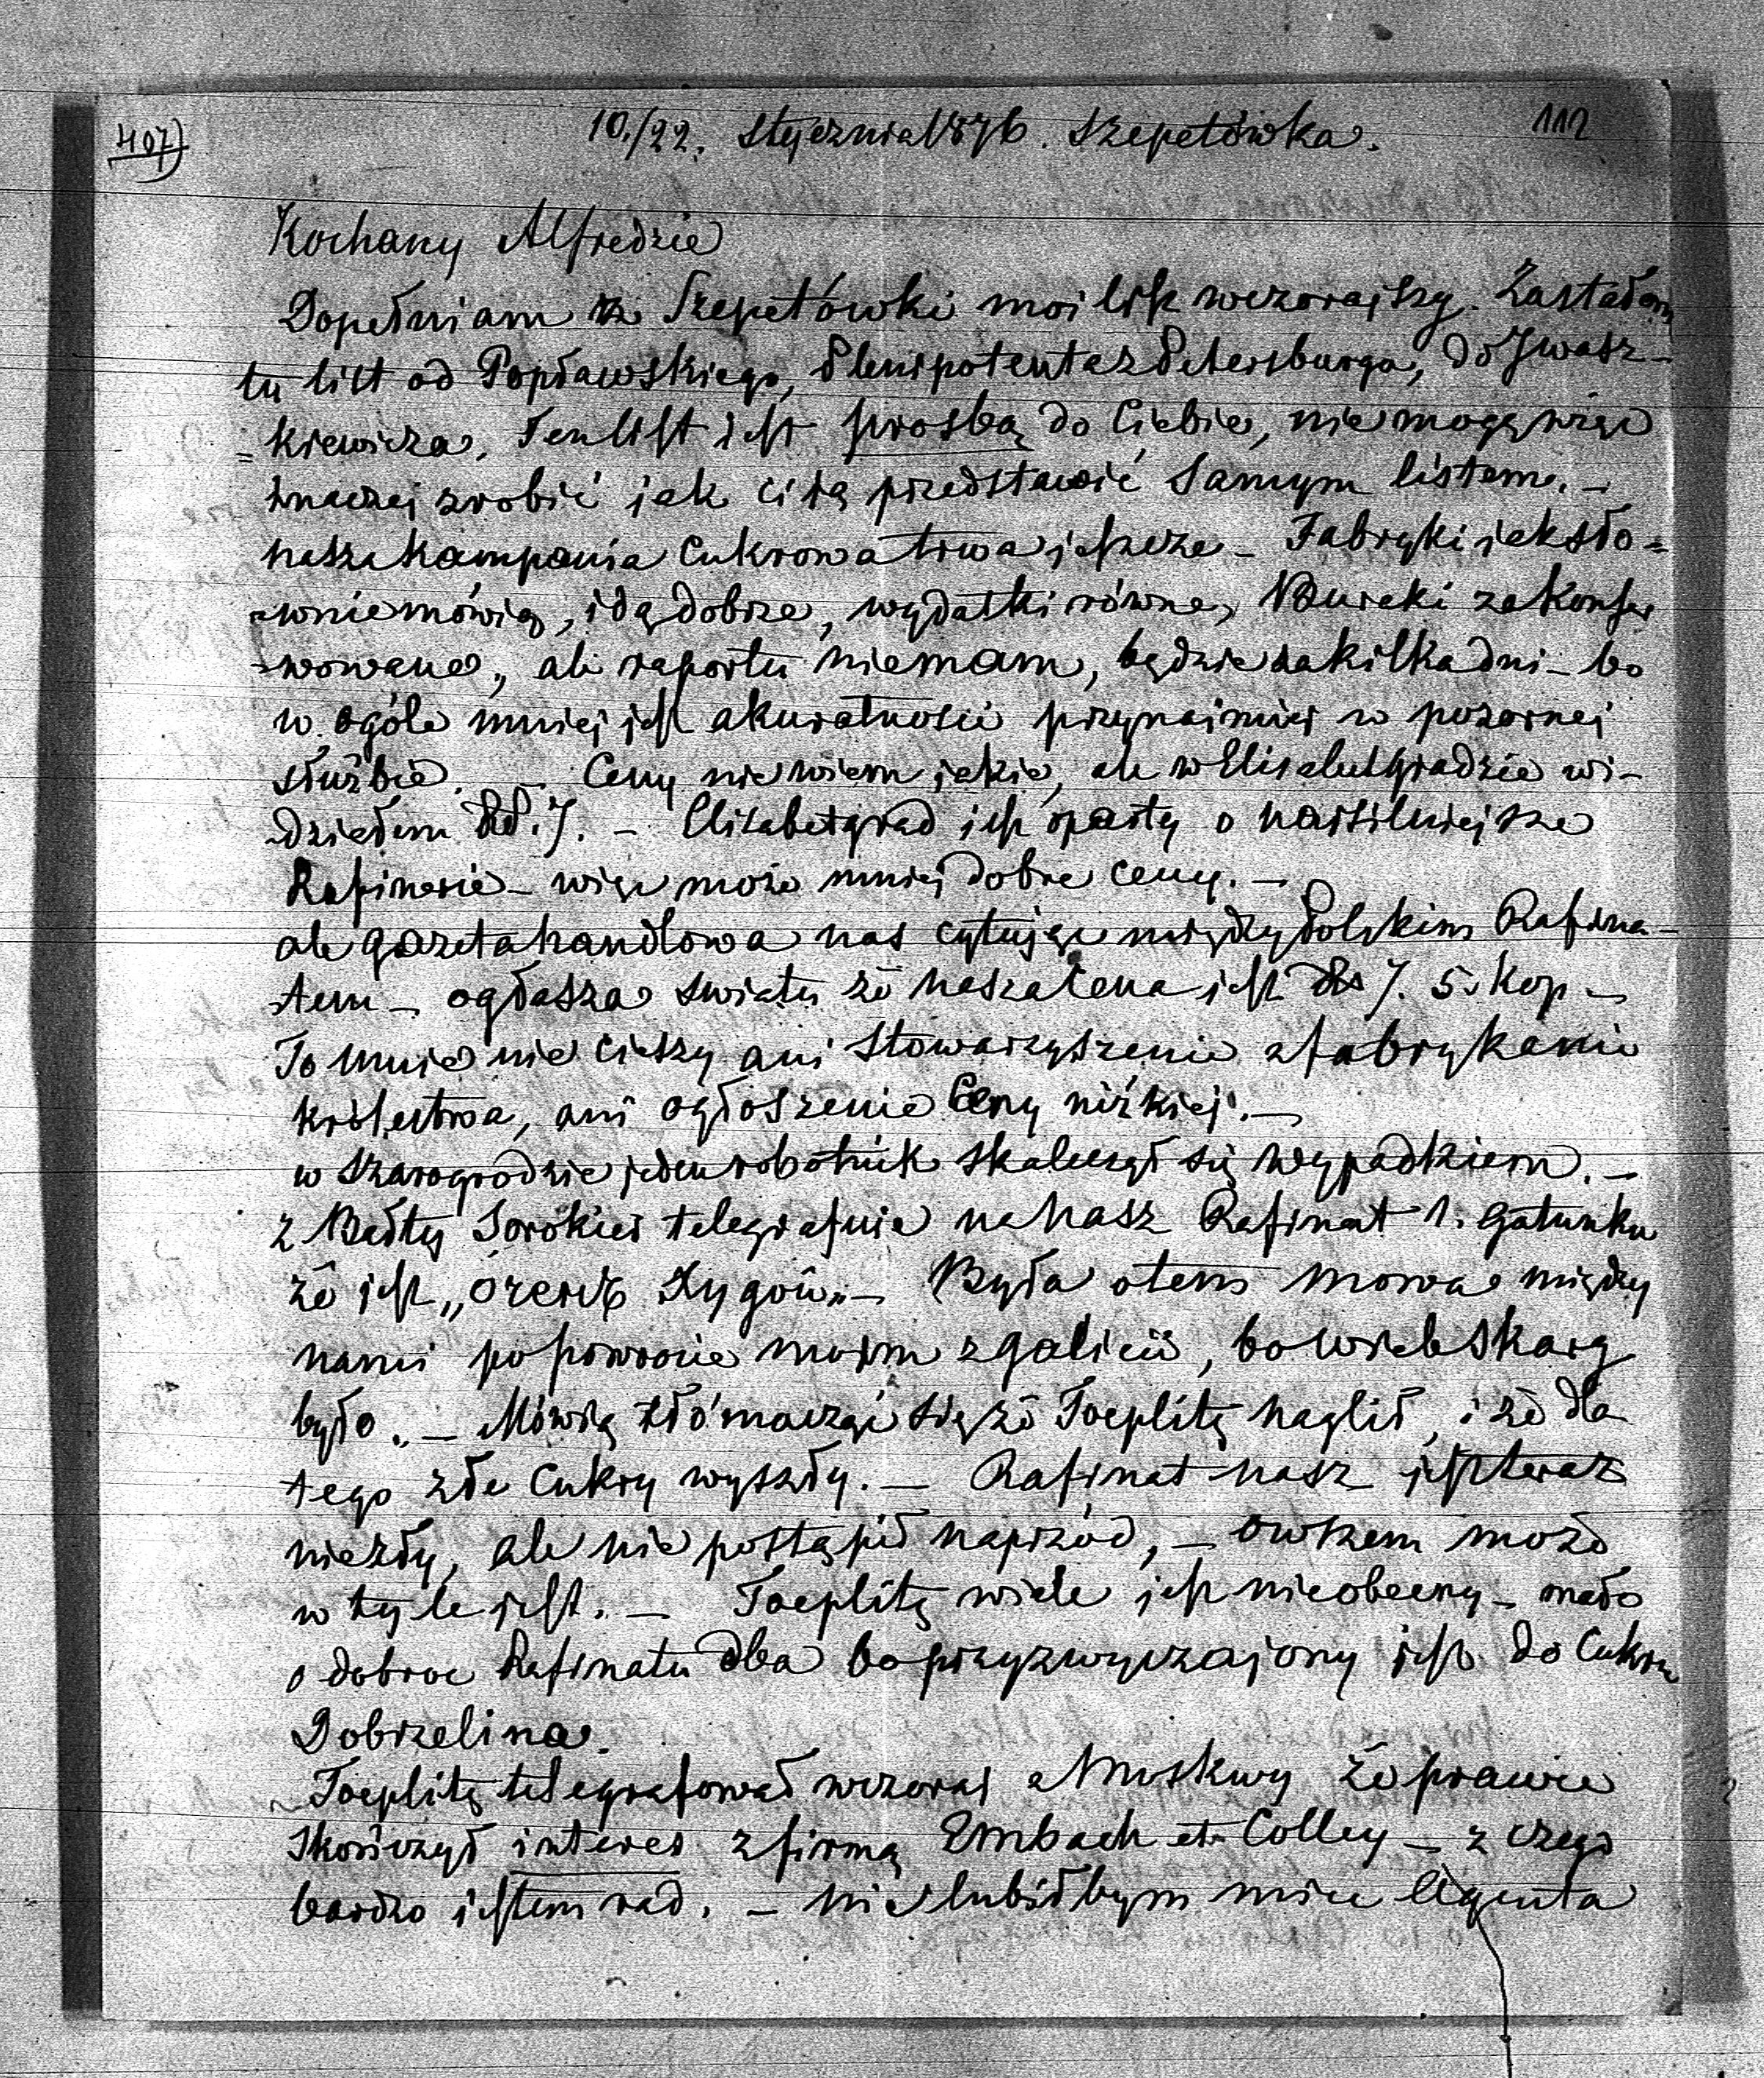 407) 10./22. Stycznia 1876. Szepetówka. 112
Kochany Alfredzie
Dopełniam z Szepetówki moi list wczorajszy. Zastałem
tu list od Popławskiego, Plenipotenta z Petersburga, do Iwasz-
=kiewicza. Ten list jest prosbą do Ciebie, nie mogę więc
inaczej zrobić jak ci ją przedstawić samym listem. –
nasza kampania Cukrowa trwa jeszcze – Fabryki jak sło=
=wnie mówią, idą dobrze, wydatki równe, Buraki zakonser
=wowane, ale raportu niemam, będzie za kilka dni – bo
w ogóle mniej jest akuratności przynajmniej w pozornej
służbie. – Ceny nie wiem jakie, ale w Elisabetgradzie wi-
-działem 7. – Elisabetgrad jest oparty o najsilniejsze
Rafinerie – więc może mniej dobre ceny. –
ale gazeta handlowa nas cytując między Polskim Rafina-
-tem – ogłasza swiatu że nasza Cena jest 7. 5. kop –
To mnie nie cieszy ani stowarzyszenie z fabrykami
królestwa, ani ogłoszenie Ceny nizkiej. –
w Szarogrodzie jeden robotnik skaleczył się wypadkiem. –
z Bałty Sorokier telegrafuie na nasz Rafinat 1. gatunku
że jest „ – Była o tem mowa między
nami po powrocie moim z galicii, bo wiele skarg
było. – Mówią tłómacząc się że Toeplitz naglił, i że dla
tego złe Cukry wyszły. – Rafinat nasz jest teraz
niezły, ale nie postąpił naprzód, – owszem może
w tyle jest. – Toeplitz wiele jest nieobecny – mało
o dobroc Rafinatu dba bo przyzwyczajony jest do Cukru
Dobrzelina.
Toeplitz telegrafował wczoraj z Moskwy że prawie
skończył interes z firmą Embach et Colley – z czego
bardzo jestem rad. – nie lubiłbym mieć Agenta